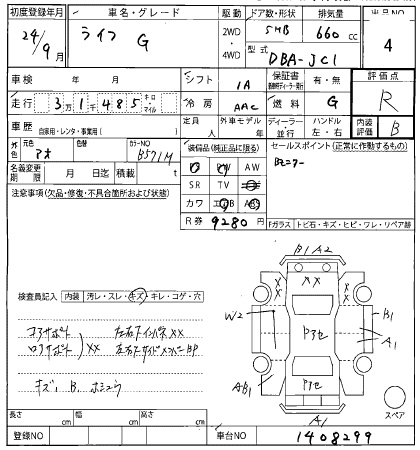 初度登録年月 車名・グレード 駆動 ドア数・形状 排気量
24/9月 ライフ G 2WD・4WD 5HB 660 cc 4
型式 DBA-JC1
車検 年 月 シフト IA 保証書 有・無 評価点
走行 3万1千485 キロ・マイル 冷房 AAC 燃料 G R
車歴 自家用・レンタ・事業用( ) 定員 人 外車モデル 年 ディーラー・並行 ハンドル 左・右 内装評価 B
外色 元色 アオ カラーNO B571M 装備品(純正品に限る) セールスポイント(正常に作動するもの)
PS PW AW
名義変更期限 月 日 積載 t SR TV
注意事項(欠品・修復・不具合箇所および状態) カワ エアB ABS
R券 9280円 Fガラス トビ石・キズ・ヒビ・ワレ・リペア跡
B1A2
XX
検査員記入 内装 汚レ・スレ・キズ・キレ・コゲ・穴
W2 P3セ B1
コアサポート 左右Fインパネ XX A1
ロアサポート XX 左右Fサイドメンバー BP
P3セ
AB1
キズ、B、ホシュウ
スペア
A1
長さ cm 幅 cm 高さ cm
登録NO 車台NO 1408299